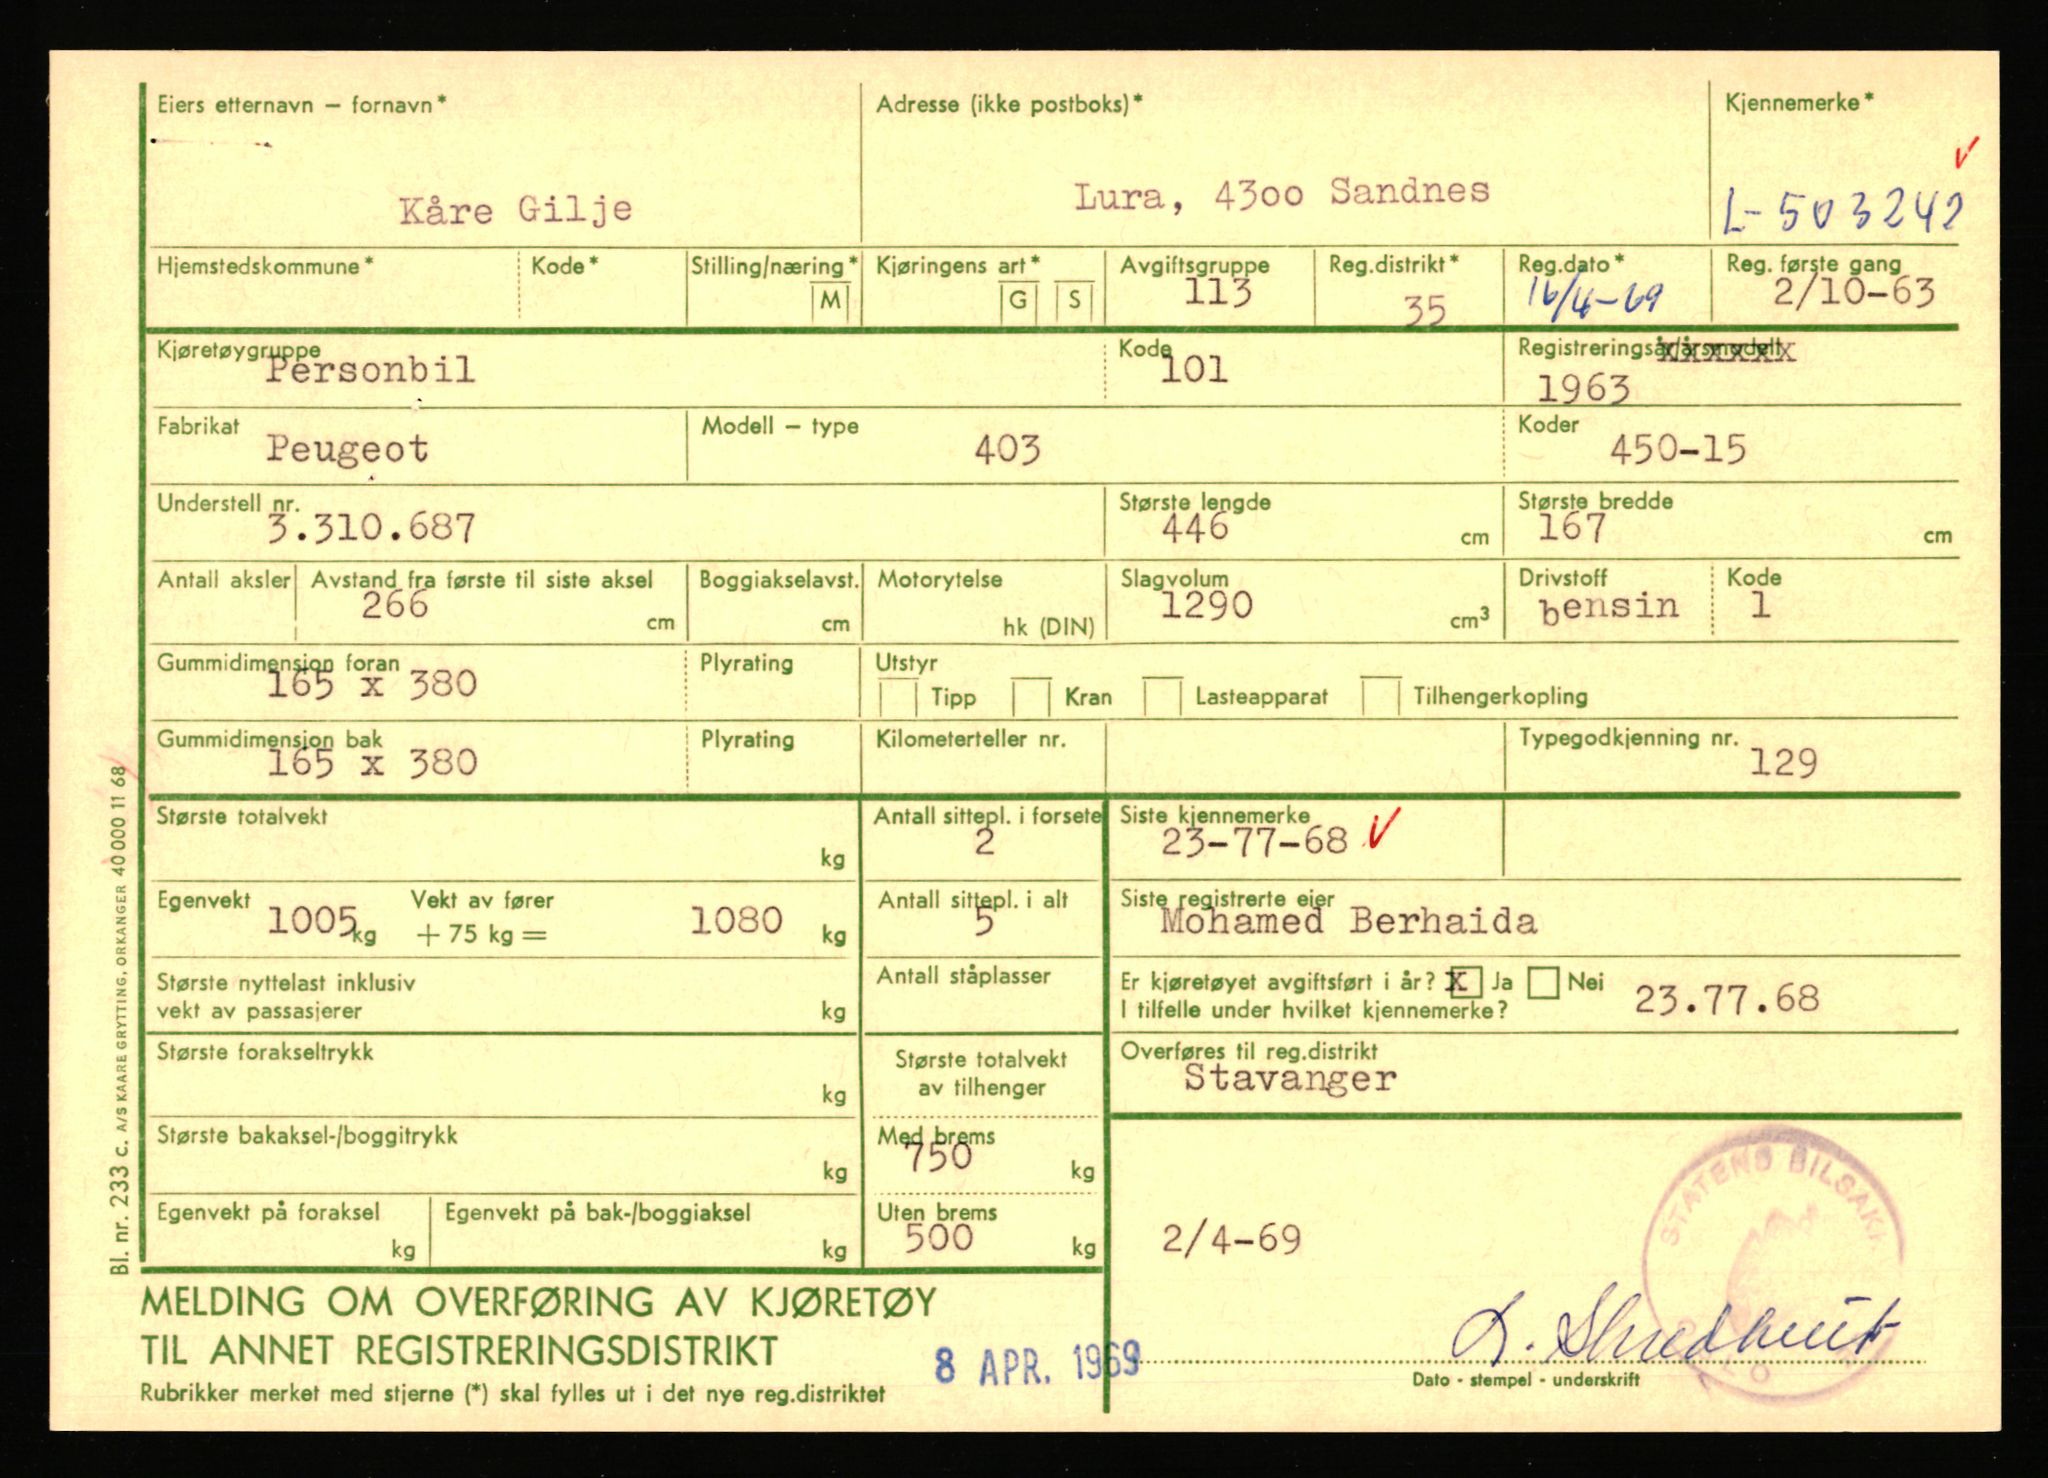 Eiers etternavn – fornavn*
Kåre Gilje
Adresse (ikke postboks)*
Lura, 4300 Sandnes
Kjennemerke*
L-503242
Hjemstedskommune*
Kode*
Stilling/næring*
M
Kjøringens art*
G S
Avgiftsgruppe
113
Reg.distrikt*
35
Reg.dato*
16/4-69
Reg. første gang
2/10-63
Kjøretøygruppe
Personbil
Kode
101
Registreringsår/årsmodell
1963
Fabrikat
Peugeot
Modell – type
403
Koder
450-15
Understell nr.
3.310.687
Største lengde
446 cm
Største bredde
167 cm
Antall aksler
Avstand fra første til siste aksel
266 cm
Boggiakselavst.
cm
Motorytelse
hk (DIN)
Slagvolum
1290 cm³
Drivstoff
bensin
Kode
1
Gummidimension foran
165 x 380
Plyrating
Utstyr
Tipp Kran Lasteapparat Tilhengerkopling
Gummidimension bak
165 x 380
Plyrating
Kilometerteller nr.
Typegodkjenning nr.
129
Største totalvekt
kg
Antall sittepl. i forsete
2
Siste kjennemerke
23-77-68
Egenvekt
1005 kg
Vekt av fører
+ 75 kg = 1080 kg
Antall sittepl. i alt
5
Siste registrerte eier
Mohamed Berhaida
Største nyttelast inklusiv
vekt av passasjerer kg
Antall ståplasser
Er kjøretøyet avgiftsført i år? X Ja Nei
I tilfelle under hvilket kjennemerke?
23.77.68
Største forakseltrykk
kg
Største totalvekt
av tilhenger
Overføres til reg.distrikt
Stavanger
Største bakaksel-/boggitrykk
kg
Med brems
750 kg
Egenvekt på foraksel
kg
Egenvekt på bak-/boggiaksel
kg
Uten brems
500 kg
2/4-69
STATENS BILSAK
MELDING OM OVERFØRING AV KJØRETØY
TIL ANNET REGISTRERINGSDISTRIKT
8 APR. 1969
Dato - stempel - underskrift
Rubrikker merket med stjerne (*) skal fylles ut i det nye reg.distriktet
Bl. nr. 233 c. A/S KAARE GRYTTING, ORKANGER 40 000 11 68